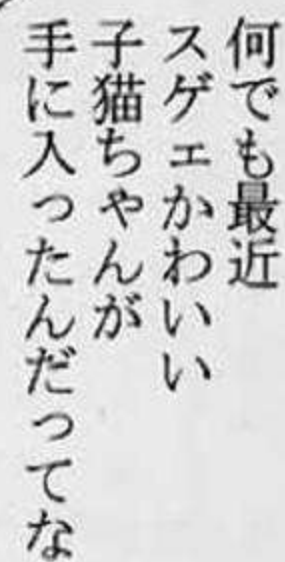 何でも最近
スゲェかわいい
子猫ちゃんが
手に入ったんだってな